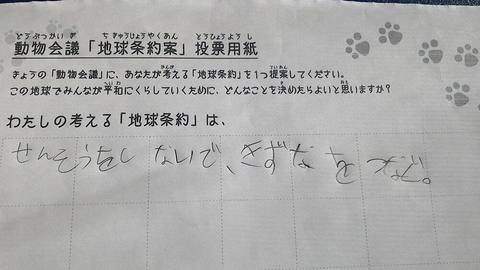 どうぶつかいぎ ちきゅうじょうやくあん とうひょうようし
動物会議「地球条約案」投票用紙
かんが ていあん
きょうの「動物会議」に、あなたが考える「地球条約」を1つ提案してください。
へいわ おも
この地球でみんなが平和にくらしていくために、どんなことを決めたらよいと思いますか?
わたしの考える「地球条約」は、
せんそうをしないで、きずなをつなぐ。